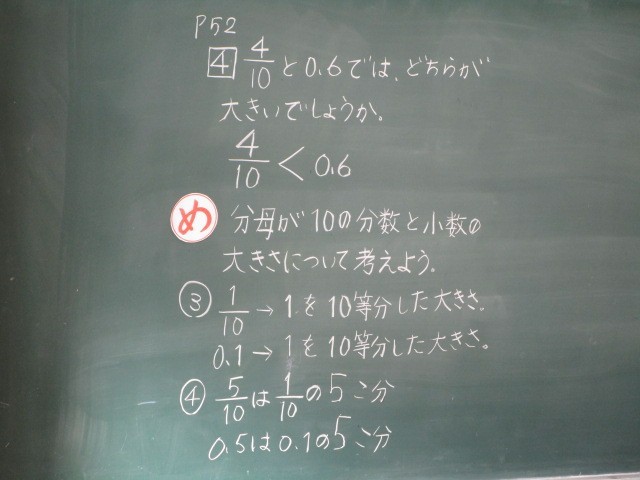 P52
4 4/10と0.6では、どちらが
大きいでしょうか。
4/10 < 0.6
め 分母が10の分数と小数の
大きさについて考えよう。
③ 1/10→1を10等分した大きさ。
0.1→1を10等分した大きさ。
④ 5/10は1/10の5こ分
0.5は0.1の5こ分